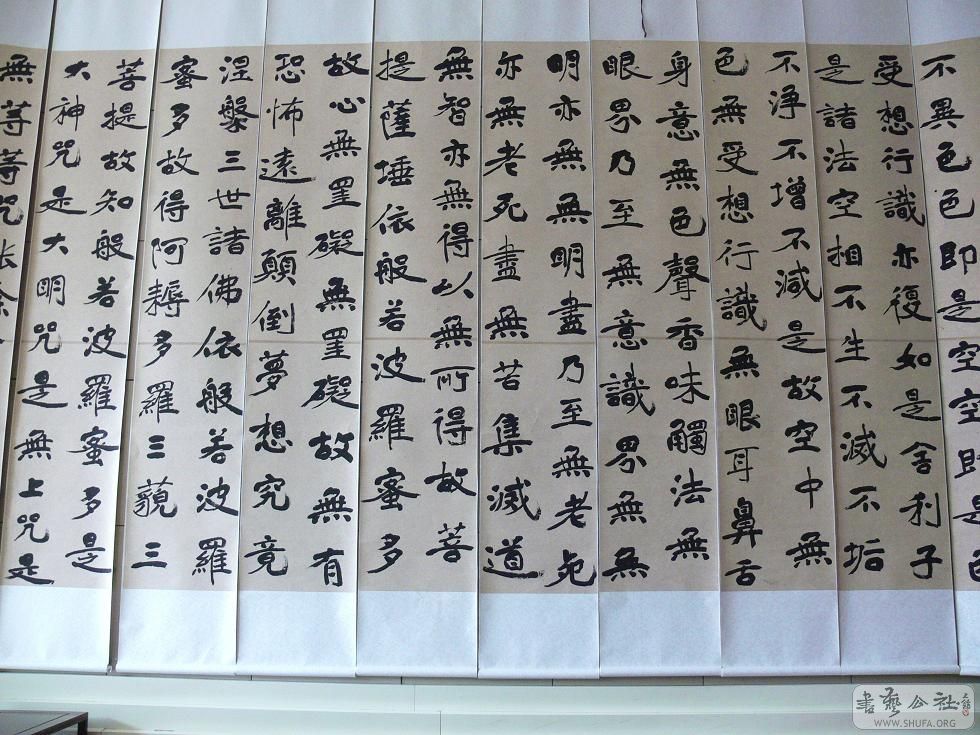 不異色色即是空空即是色
受想行識亦復如是舍利子
是諸法空相不生不滅不垢
不淨不增不減是故空中無
色無受想行識無眼耳鼻舌
身意無色聲香味觸法無
眼界乃至無意識界無無
明亦無無明盡乃至無老死
亦無老死盡無苦集滅道
無智亦無得以無所得故菩
提薩埵依般若波羅蜜多
故心無罣礙無罣礙故無有
恐怖遠離顛倒夢想究竟
涅槃三世諸佛依般若波羅
蜜多故得阿耨多羅三藐三
菩提故知般若波羅蜜多是
大神咒是大明咒是無上咒是
無等等咒
書藝公社
WWW.SHUFA.ORG